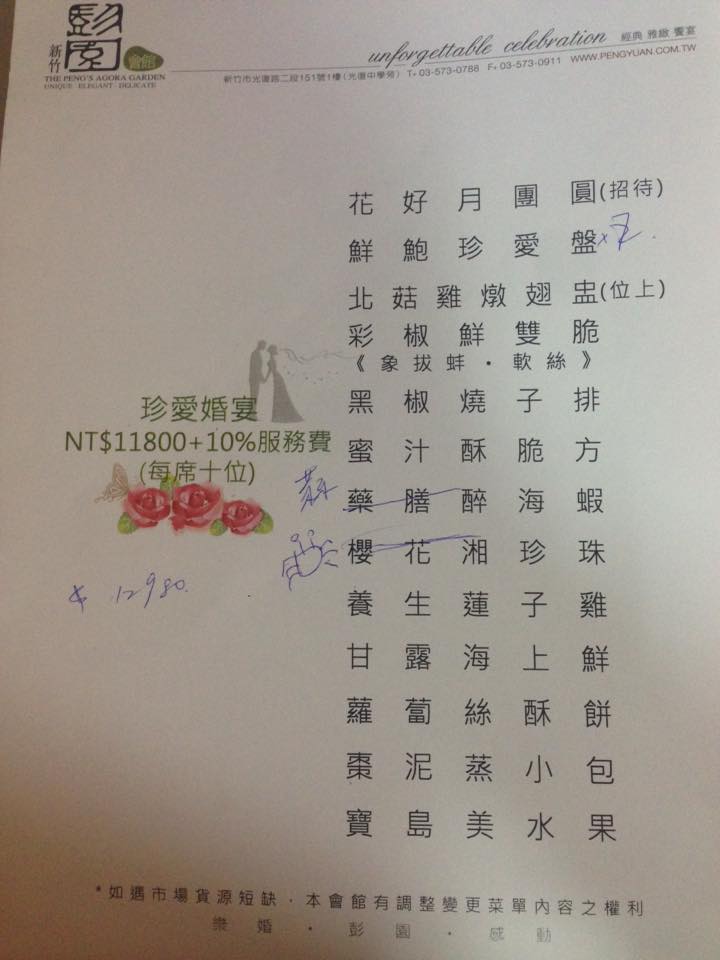 彭園
新竹
會館
THE PENG'S AGORA GARDEN
UNIQUE · ELEGANT · DELICATE
unforgettable celebration 經典 雅緻 饗宴
新竹市光復路二段151號1樓(光復中學旁) T+ 03-573-0788 F+ 03-573-0911 WWW.PENGYUAN.COM.TW
花好月團圓(招待)
鮮鮑珍愛盤
北菇雞燉翅盅(位上)
彩椒鮮雙脆
《象拔蚌·軟絲》
黑椒燒子排
蜜汁酥脆方
藥膳醉海蝦
櫻花湘珍珠
養生蓮子雞
甘露海上鮮
蘿蔔絲酥餅
棗泥蒸小包
寶島美水果
珍愛婚宴
NT$11800+10%服務費
(每席十位)
12980.
*如遇市場貨源短缺·本會館有調整變更菜單內容之權利
樂婚·彭園·感動